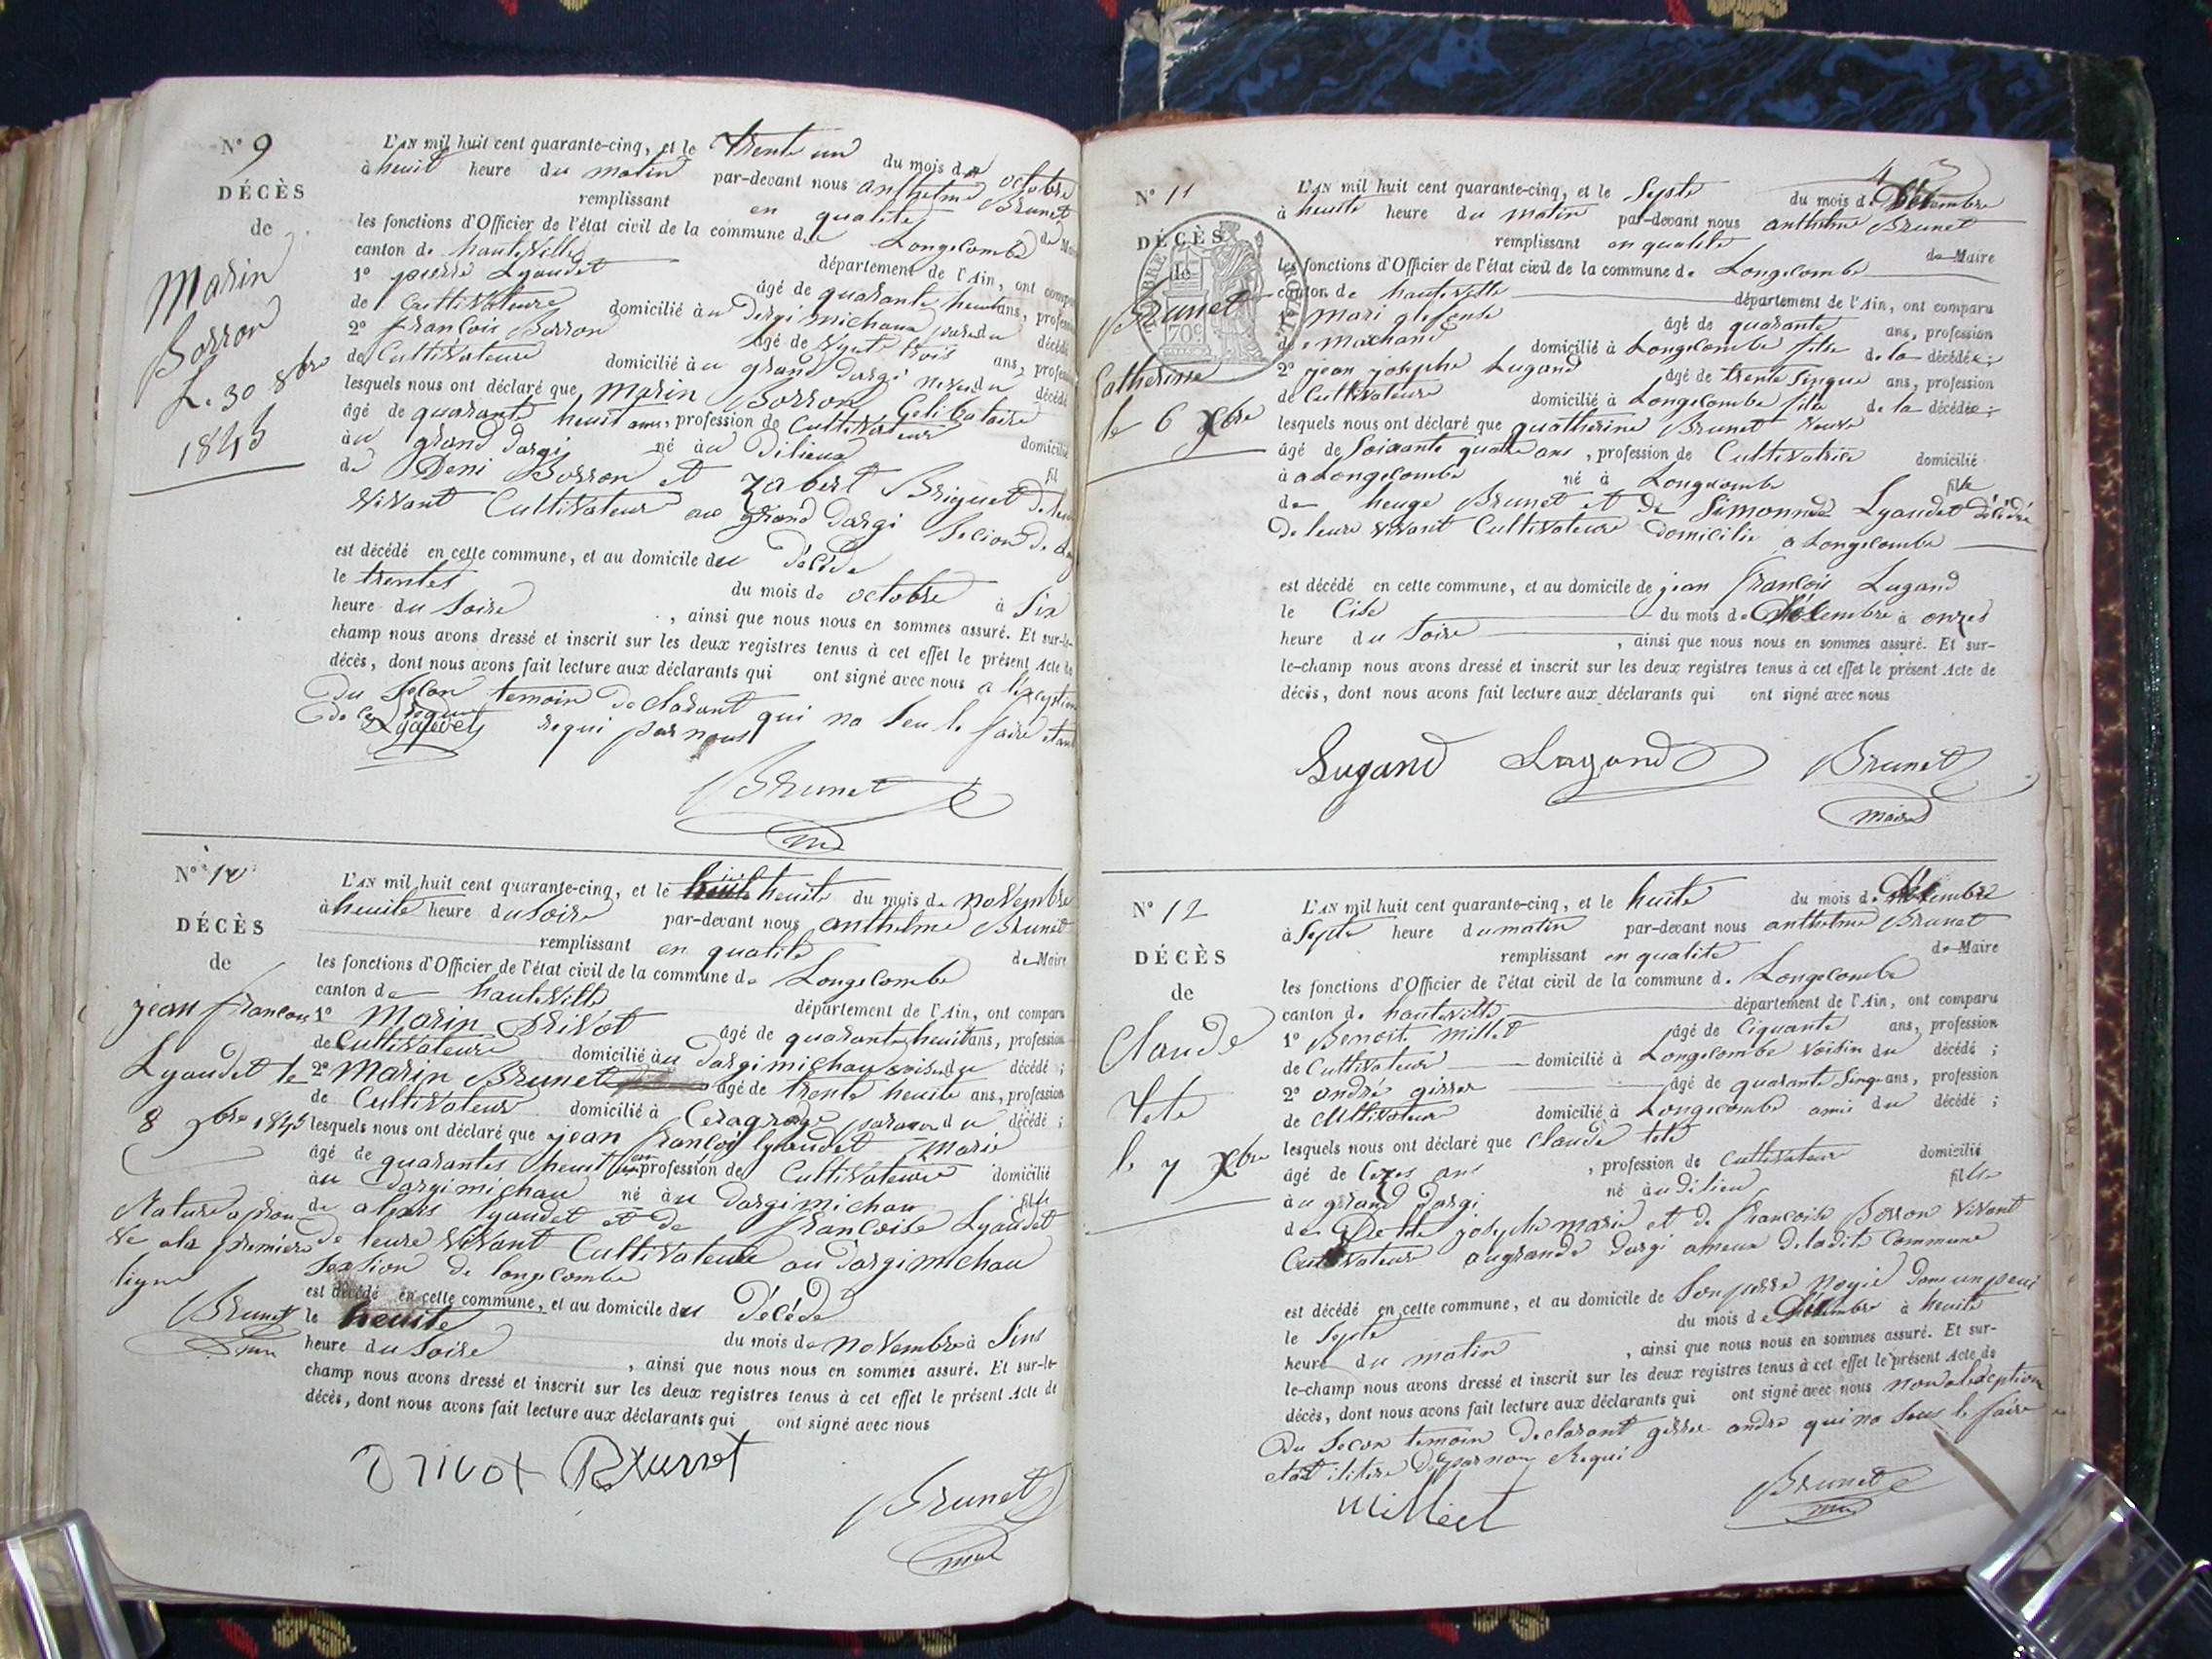 N° 9
DÉCÈS
de
Marin
Borron
L. 30 8bre
1845
L'AN mil huit cent quarante-cinq, et le trente un du mois d octobre
à heuit heure du matin par-devant nous anthelme Brunet
remplissant en qualité de Maire
les fonctions d'Officier de l'état civil de la commune de Longecombe
canton de hauteville département de l'Ain, ont comparu
1° pierre Lyaudet âgé de quarante heuit ans, profession
de Cultivateure domicilié àu Dargi michaux décédé
2° françois Borron âgé de vigute trois ans, profession
de Cultivateure domicilié àu grand dargi neveu du décédé
lesquels nous ont déclaré que Marin Borron Gelibataire
âgé de quarante heuit ans, profession de Cultivateure domicilié
àu grand dargi né àu Dilieux fil
de Deni Borron et Zabert Briguet De leur
vivant Cultivateur au grand Dargi Secion de
est décédé en cette commune, et au domicile du décéde
le trentes du mois de octobre à Six
heure du Soire , ainsi que nous nous en sommes assuré. Et sur-le-
champ nous avons dressé et inscrit sur les deux registres tenus à cet effet le présent Acte de
décès, dont nous avons fait lecture aux déclarants qui ont signé avec nous a l'exseption
Du Secon temoin declarant qui na Seu le faire etant
de ce requi par nous
Brunet
N° 10
DÉCÈS
de
jean francois
Lyaudet le
8 9bre 1845
Rature aprou-
ve ala premiere
ligne
Brunet
L'AN mil huit cent quarante-cinq, et le heuite du mois de novembre
à heuite heure du Soire par-devant nous anthelme Brunet
remplissant en qualité de Maire
les fonctions d'Officier de l'état civil de la commune de Longecombe
canton de hauteville département de l'Ain, ont comparu
1° Marin Drivot âgé de quarante heuit ans, profession
de Cultivateure domicilié àu Dargimichau voisin du décédé ;
2° Marin Brunet âgé de trente heuite ans, profession
de Cultivateure domicilié à du décédé ;
lesquels nous ont déclaré que jean françois lyaudet Marié
âgé de quarantes heuit ans profession de Cultivateure domicilié
àu Dargimichau né àu Dargimichau fils
de alexis lyaudet et de francoise Lyaudet
de leure vivant Cultivateure au Dargimichau
Section de longecombe
est décédé en cette commune, et au domicile du Décéde
le heuite du mois de novembre à Sins
heure du Soire , ainsi que nous nous en sommes assuré. Et sur-le-
champ nous avons dressé et inscrit sur les deux registres tenus à cet effet le présent Acte de
décès, dont nous avons fait lecture aux déclarants qui ont signé avec nous
Drivot Brunet
Brunet
N° 11
DÉCÈS
de
Brunet
Catherine
le 6 Xbre
TIMBRE ROYAL
70c
L'AN mil huit cent quarante-cinq, et le Septe du mois de Décembre
à heuite heure du matin par-devant nous anthelme Brunet
remplissant en qualité de Maire
les fonctions d'Officier de l'état civil de la commune de Longecombe
canton de hauteville département de l'Ain, ont comparu
1° Mari âgé de quarante ans, profession
de Machand domicilié à Longecombe fils de la décédée ;
2° jean josephe Lugand âgé de trente Singue ans, profession
de Cultivateure domicilié à Longecombe fils de la décédée ;
lesquels nous ont déclaré que quatherine Brunet veuve
âgé de Soixante quatre ans , profession de Cultivatrice domicilié
à a Longecombe né à Longecombe fille
de heuge Brunet et de Simonne Lyaudet décédé
De leure vivant Cultivateure domicilie a Longecombe
est décédé en cette commune, et au domicile de jean françois Lugand
le Cise du mois de Décembre à onzes
heure du Soire , ainsi que nous nous en sommes assuré. Et sur-
le-champ nous avons dressé et inscrit sur les deux registres tenus à cet effet le présent Acte de
décès, dont nous avons fait lecture aux déclarants qui ont signé avec nous
Lugand Lugand Brunet
maire
N° 12
DÉCÈS
de
Claude
tete
le 7 Xbre
L'AN mil huit cent quarante-cinq, et le huite du mois de Décembre
à Septe heure du matin par-devant nous anthelme Brunet
remplissant en qualité de Maire
les fonctions d'Officier de l'état civil de la commune d. Longecombe
canton de hauteville département de l'Ain, ont comparu
1° Benoit Millet âgé de Ciquante ans, profession
de Cultivateure domicilié à Longecombe voisin du décédé ;
2° andré girrer âgé de quarante Singe ans, profession
de Cultivateure domicilié à Longecombe amis du décédé ;
lesquels nous ont déclaré que Claude tete
âgé de ans , profession de Cultivateure domicilié
à u grand Dargi né àu Dilieu fils
de tete josephe marie et de francoise Borron vivant
Cultivateure au grande Dargi ameux deladite Commune
est décédé en cette commune, et au domicile de Son perre noyié dans un peui
le Septe du mois de Décembre à heuite
heure du matin , ainsi que nous nous en sommes assuré. Et sur-
le-champ nous avons dressé et inscrit sur les deux registres tenus à cet effet le présent Acte de
décès, dont nous avons fait lecture aux déclarants qui ont signé avec nous
Du Secon temoin Declarant girrer andre qui na Seus le faire
etat ilitere de par nous Requi
Millet
Brunet